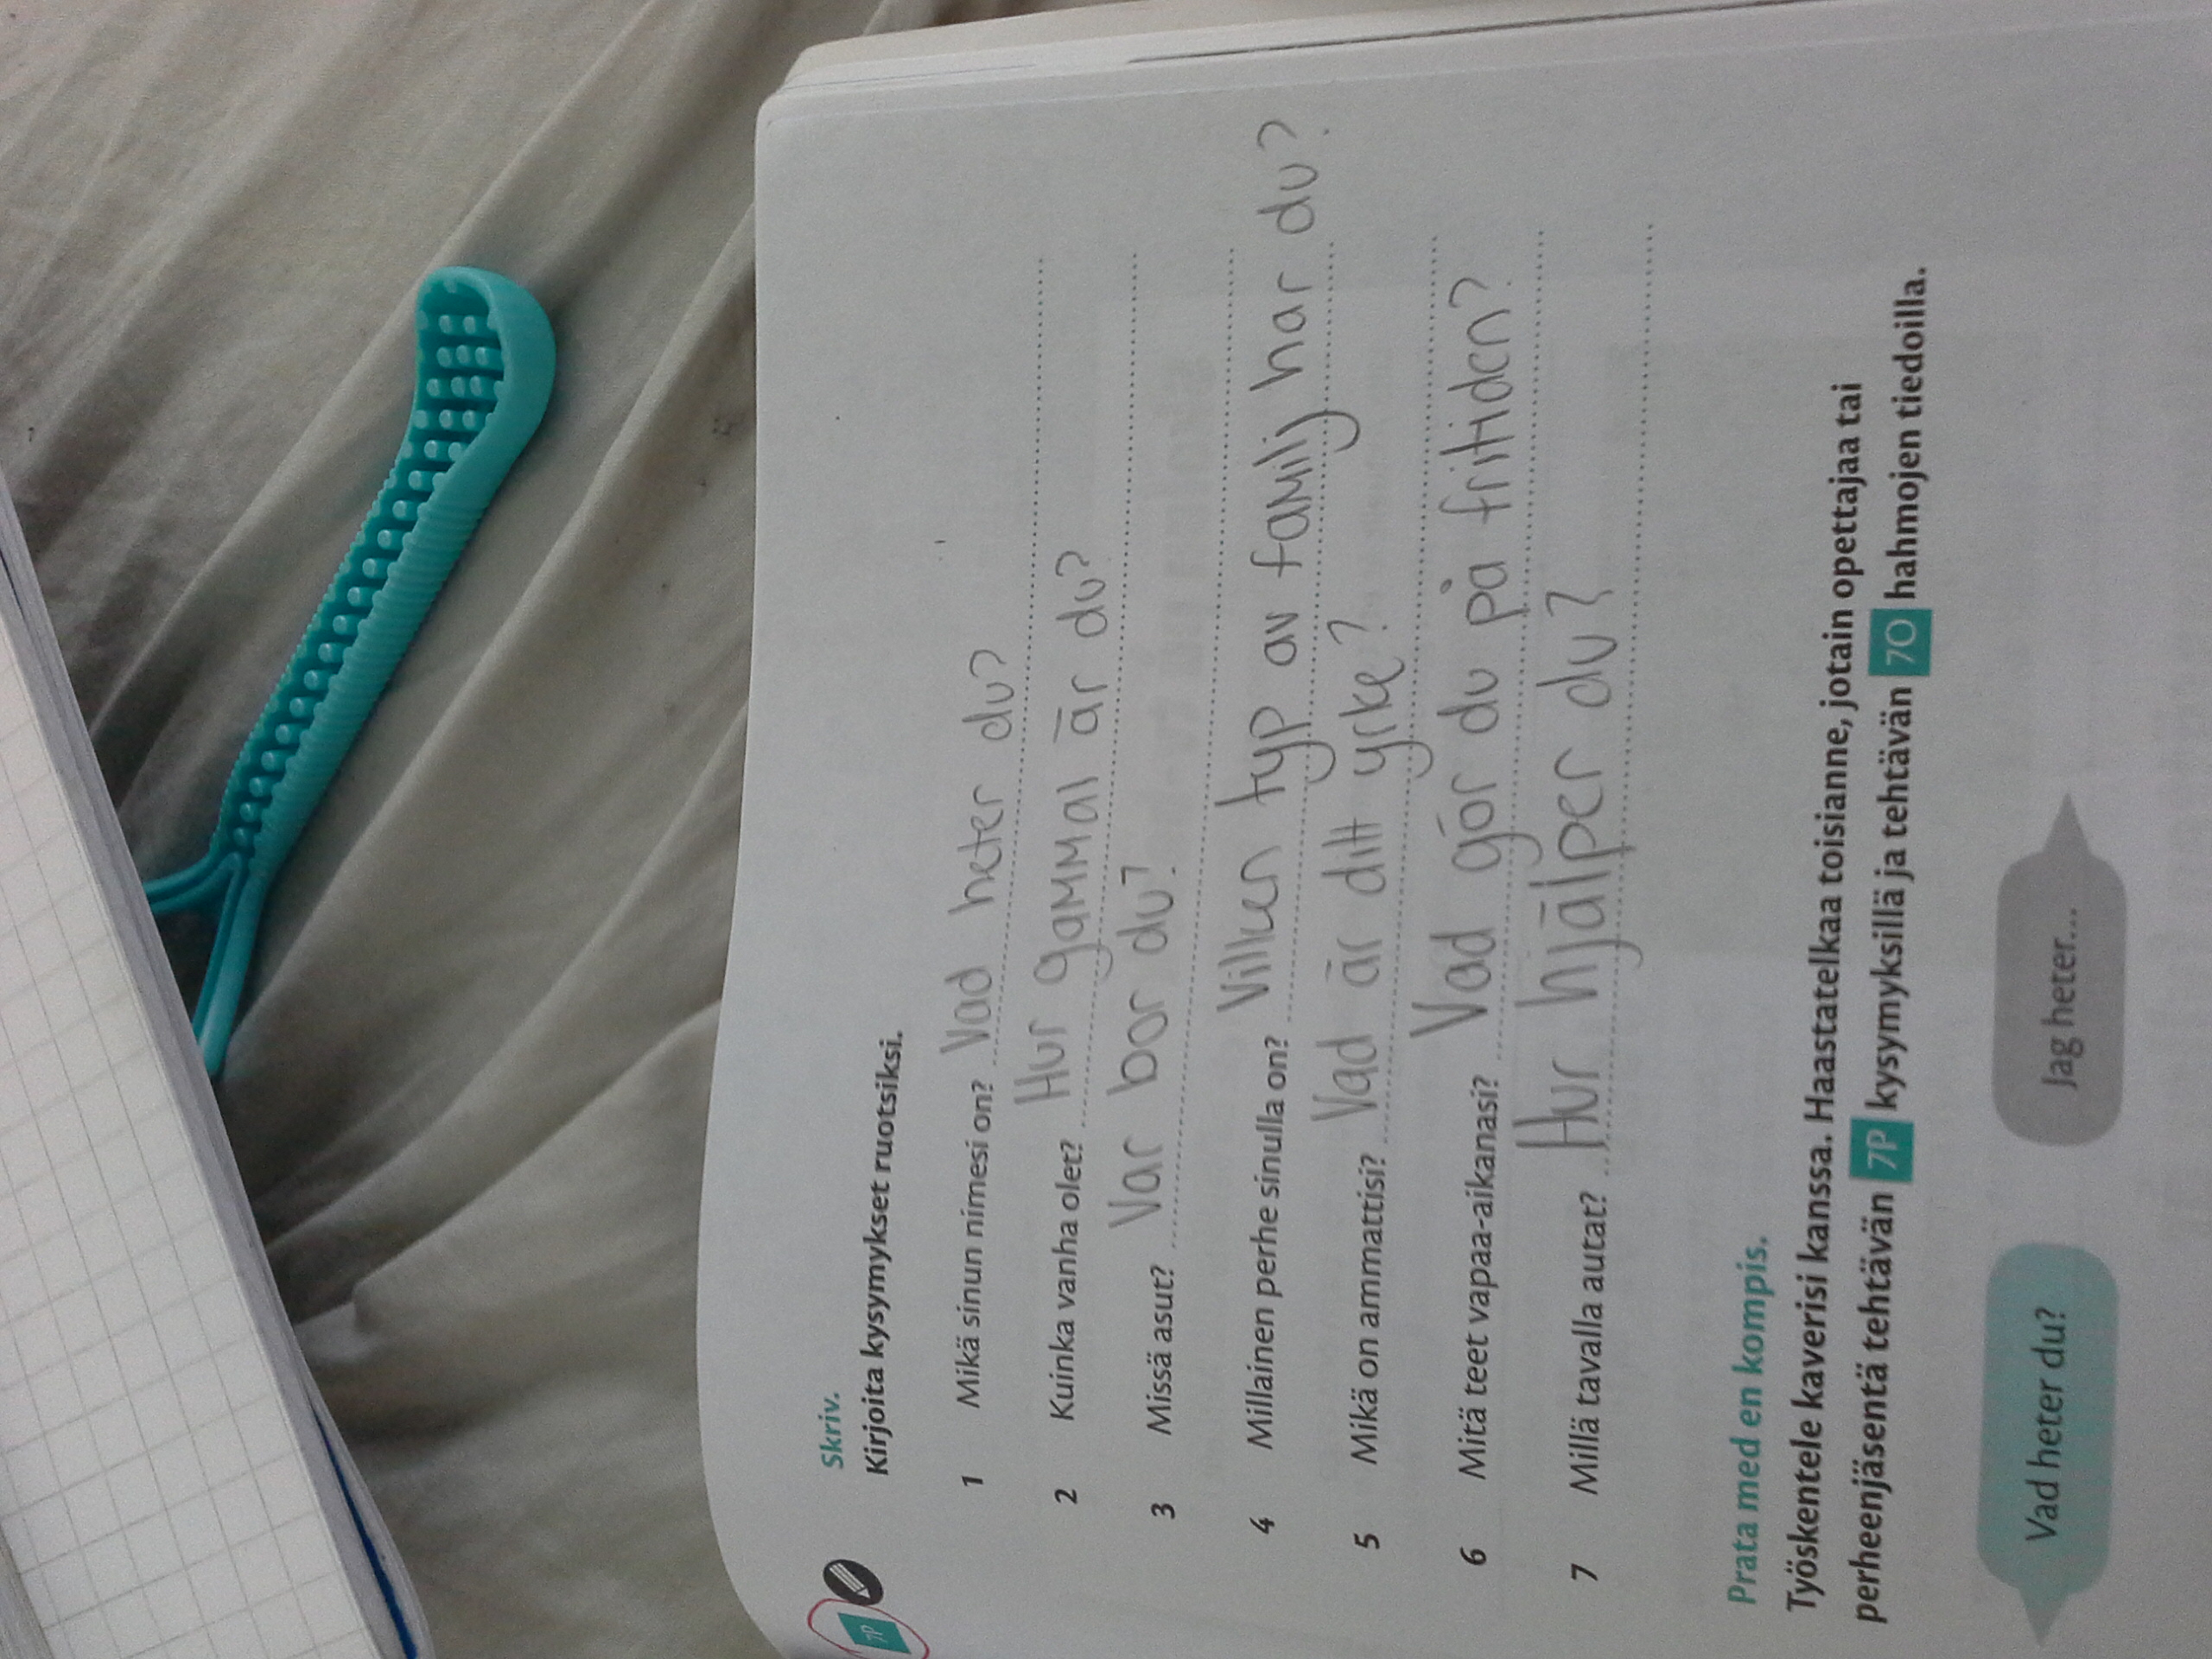 7P
Skriv.
Kirjoita kysymykset ruotsiksi.
1 Mikä sinun nimesi on? Vad heter du?
2 Kuinka vanha olet? Hur gammal är du?
3 Missä asut? Var bor du?
4 Millainen perhe sinulla on? Vilken typ av familj har du?
5 Mikä on ammattisi? Vad är ditt yrke?
6 Mitä teet vapaa-aikanasi? Vad gör du på fritiden?
7 Millä tavalla autat? Hur hjälper du?
Prata med en kompis.
Työskentele kaverisi kanssa. Haastatelkaa toisianne, jotain opettajaa tai
perheenjäsentä tehtävän 7P kysymyksillä ja tehtävän 7O hahmojen tiedoilla.
Vad heter du?
Jag heter...